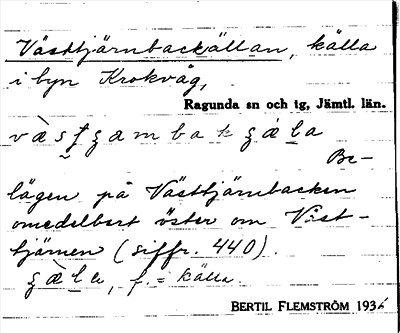 Västtjärnbackjällan, källa
i byn Krokvåg,
Ragunda sn och tg, Jämtl. län.
Be-
lägen på Västtjärnbacken
omedelbart öster om Väst-
tjärnen (siffr. 440).
f. = källa.
BERTIL FLEMSTRÖM 1936